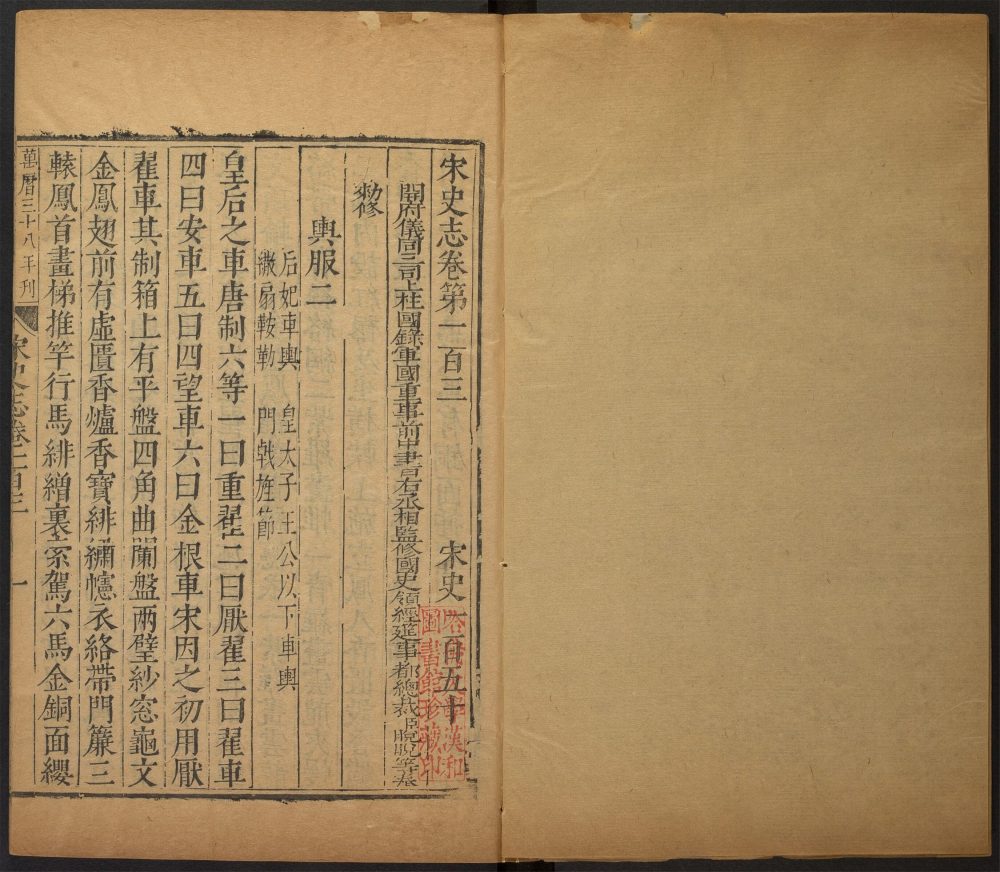 宋史志卷第一百三　宋史一百五十
開府儀同三司上柱國錄軍國重事前中書右丞相監修國史領經筵事都總裁臣脫脫等奉
勅修
輿服二
后妃車輿　皇太子王公以下車輿
繖扇鞍勒　門戟旌節
皇后之車唐制六等一曰重翟二曰厭翟三曰翟車
四曰安車五曰四望車六曰金根車宋因之初用厭
翟車其制箱上有平盤四角曲闌盤兩壁紗窓龜文
金鳳翅前有虛匱香爐香寶緋繡幰衣絡帶門簾三
轅鳳首畫梯推竿行馬緋繒裏索駕六馬金銅面纓
萬曆三十八年刊
宋史志卷一百三
一
哈佛大學漢和
圖書館珍藏印